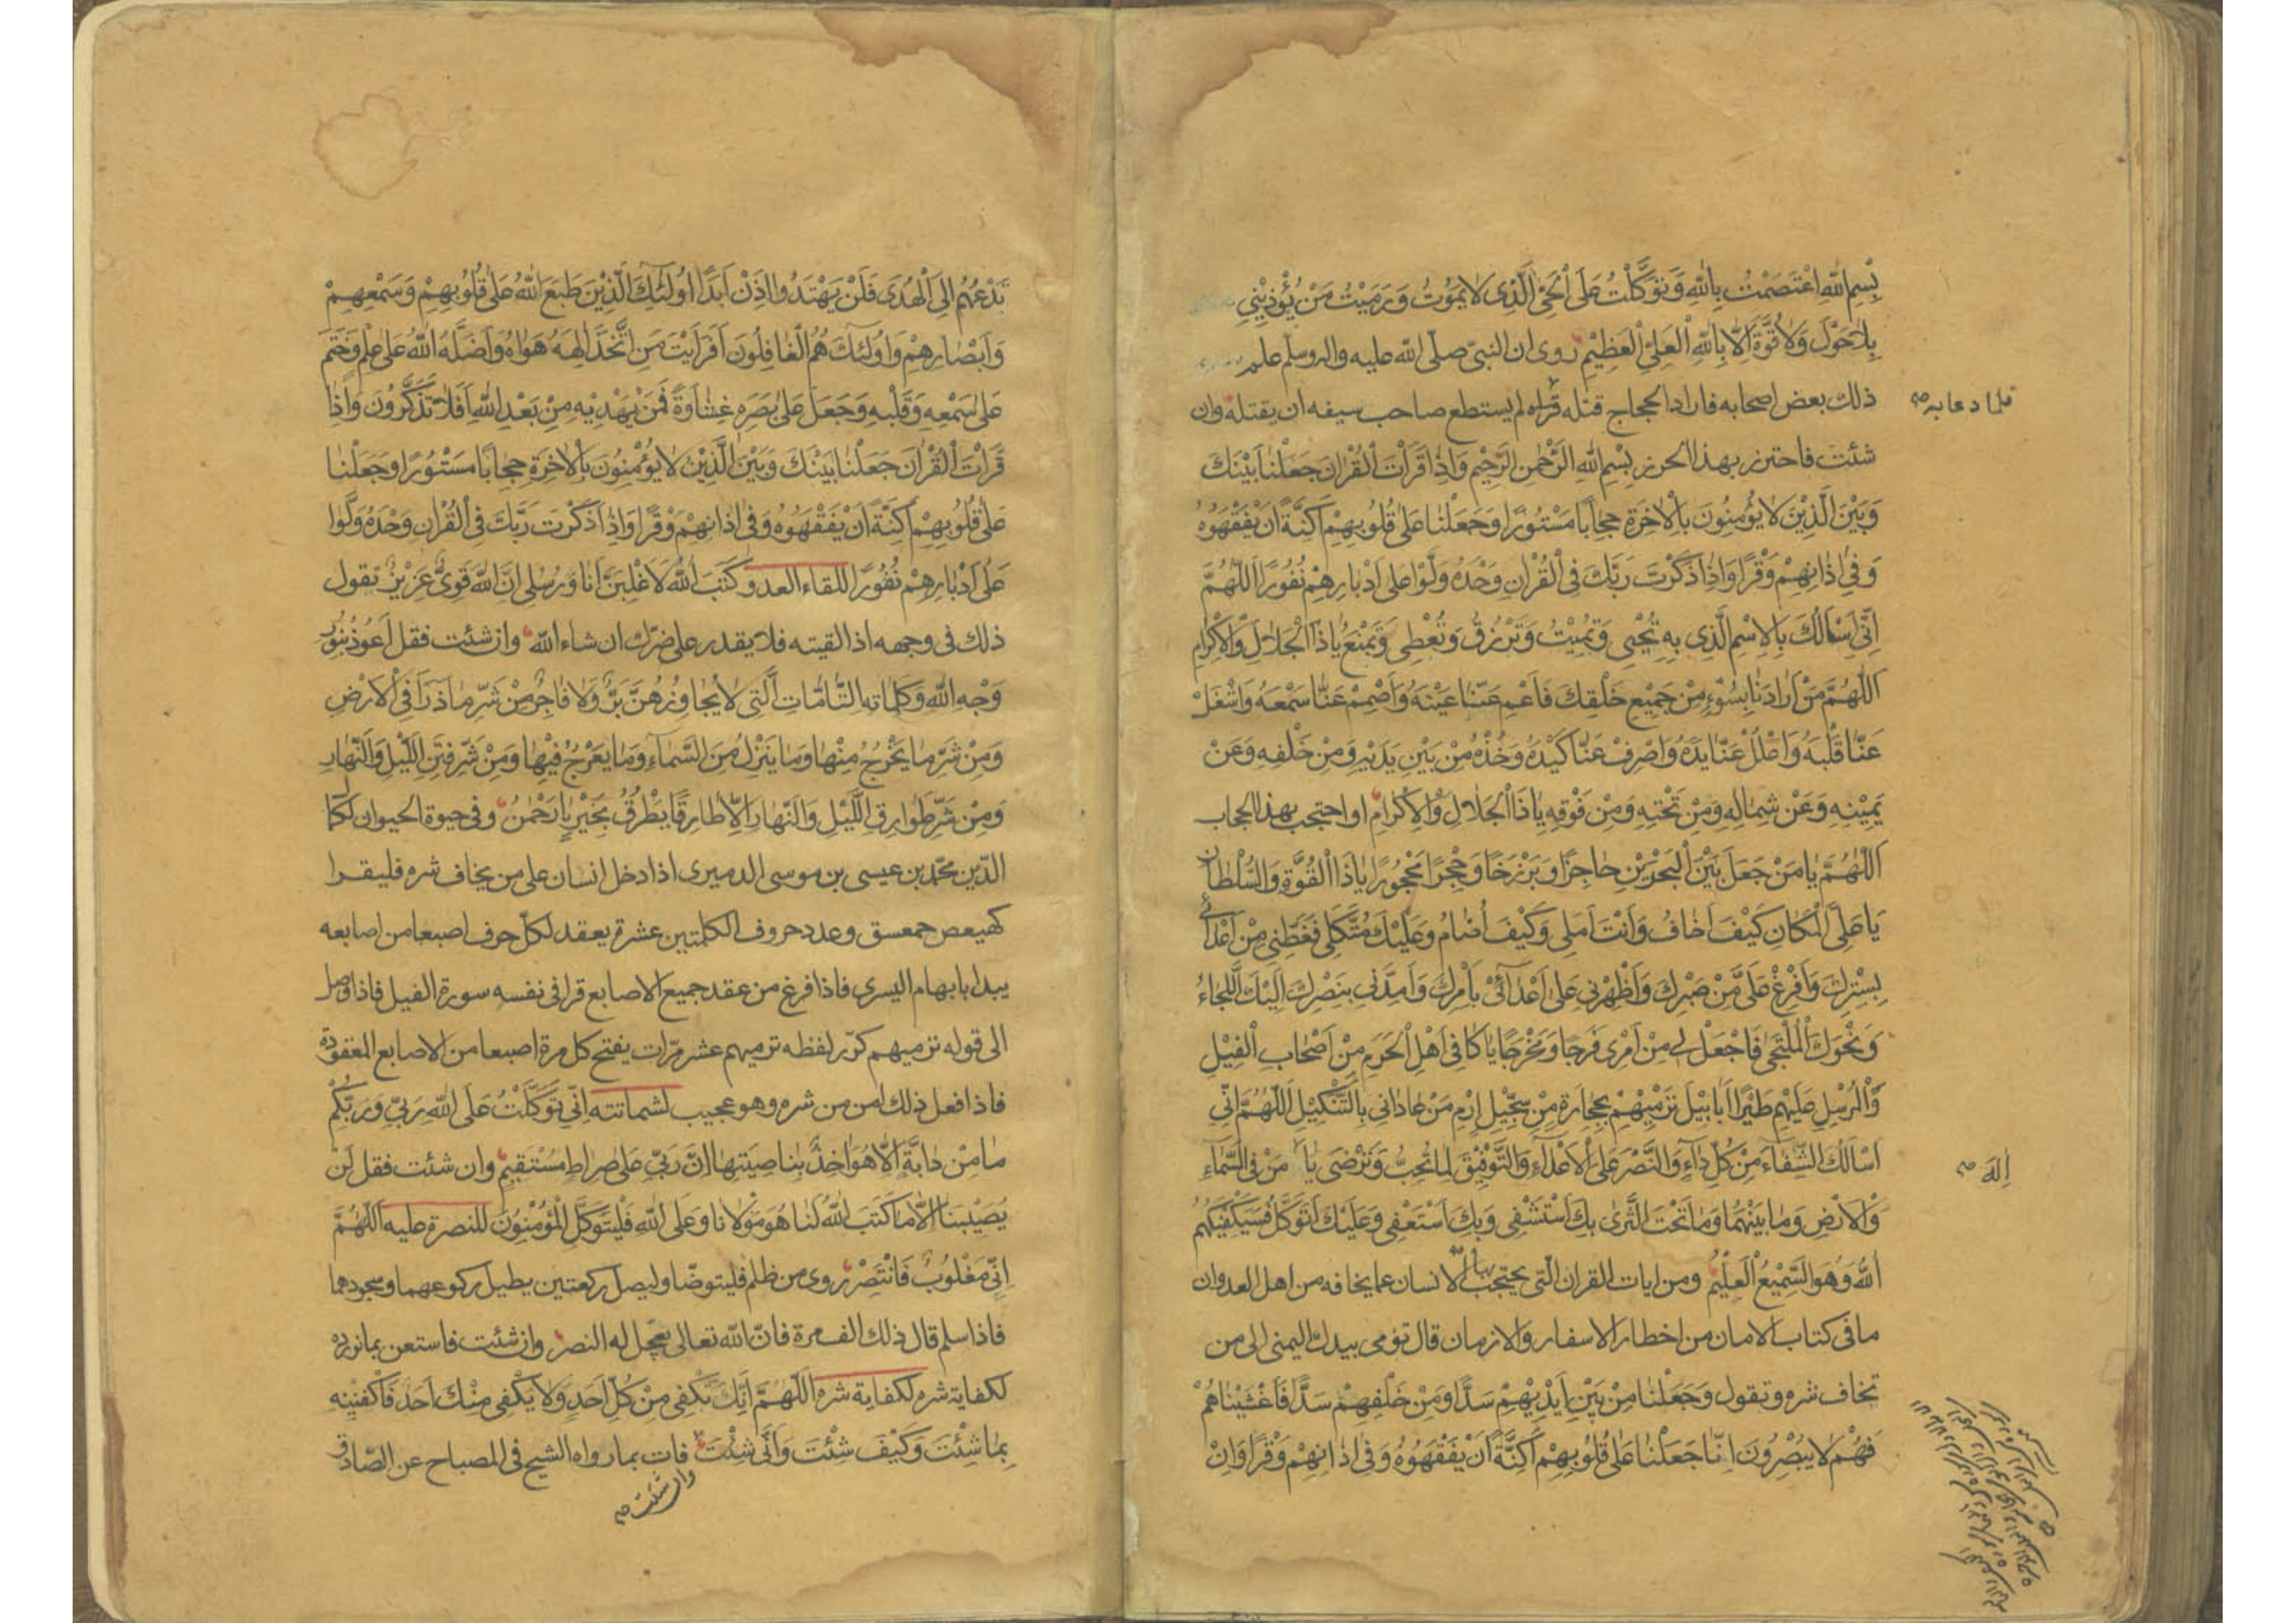 بِسْمِ اللّٰهِ اعْتَصَمْتُ بِاللّٰهِ وَتَوَكَّلْتُ عَلَى الْحَيِّ الَّذِي لَا يَمُوتُ وَرَمَيْتُ مَنْ يُؤْذِينِي
بِلَا حَوْلَ وَلَا قُوَّةَ اِلَّا بِاللّٰهِ الْعَلِيِّ الْعَظِيمِ روى ان النبيّ صلّى اللّٰه عليه واله وسلم علم
ذلك بعض اصحابه فاراد الحجاج قتله قراه لم يستطع صاحب سيفه ان يقتله وان
فلما دعا به صح
شئت فاحترز بهذا الحرز بِسْمِ اللّٰهِ الرَّحْمٰنِ الرَّحِيمِ وَاِذَا قَرَأْتَ الْقُرْاٰنَ جَعَلْنَا بَيْنَكَ
وَبَيْنَ الَّذِينَ لَا يُؤْمِنُونَ بِالْاٰخِرَةِ حِجَابًا مَسْتُورًا وَجَعَلْنَا عَلٰى قُلُوبِهِمْ اَكِنَّةً اَنْ يَفْقَهُوهُ
وَفِي اٰذَانِهِمْ وَقْرًا وَاِذَا ذَكَرْتَ رَبَّكَ فِي الْقُرْاٰنِ وَحْدَهُ وَلَّوْا عَلٰى اَدْبَارِهِمْ نُفُورًا اَللّٰهُمَّ
اِنِّي اَسْاَلُكَ بِالْاِسْمِ الَّذِي بِهِ تُحْيِي وَتُمِيتُ وَتَرْزُقُ وَتُعْطِي وَتَمْنَعُ يَا ذَا الْجَلَالِ وَالْاِكْرَامِ
اَللّٰهُمَّ مَنْ اَرَادَنَا بِسُوْءٍ مِنْ جَمِيعِ خَلْقِكَ فَاَعْمِ عَنَّا عَيْنَهُ وَاَصْمِمْ عَنَّا سَمْعَهُ وَاشْغَلْ
عَنَّا قَلْبَهُ وَاغْلُلْ عَنَّا يَدَهُ وَاصْرِفْ عَنَّا كَيْدَهُ وَخُذْهُ مِنْ بَيْنِ يَدَيْهِ وَمِنْ خَلْفِهِ وَعَنْ
يَمِينِهِ وَعَنْ شِمَالِهِ وَمِنْ تَحْتِهِ وَمِنْ فَوْقِهِ يَا ذَا الْجَلَالِ وَالْاِكْرَامِ او احتجب بهذا الحجاب
اَللّٰهُمَّ يَا مَنْ جَعَلَ بَيْنَ الْبَحْرَيْنِ حَاجِزًا وَبَرْزَخًا وَحِجْرًا مَحْجُورًا يَا ذَا الْقُوَّةِ وَالسُّلْطَانِ
يَا عَلِيَّ الْمَكَانِ كَيْفَ اَخَافُ وَاَنْتَ اَمَلِي وَكَيْفَ اُضَامُ وَعَلَيْكَ مُتَّكَلِي فَغَطِّنِي مِنْ اَعْدَائِي
بِسِتْرِكَ وَاَفْرِغْ عَلَيَّ مِنْ صَبْرِكَ وَاَظْهِرْنِي عَلٰى اَعْدَائِي بِاَمْرِكَ وَاَمِدَّنِي بِنَصْرِكَ اِلَيْكَ اللَّجَاءُ
وَنَحْوَكَ الْمُلْتَجٰى فَاجْعَلْ لِي مِنْ اَمْرِي فَرَجًا وَمَخْرَجًا يَا كَافِيَ اَهْلِ الْحَرَمِ مِنْ اَصْحَابِ الْفِيلِ
وَالْمُرْسِلَ عَلَيْهِمْ طَيْرًا اَبَابِيلَ تَرْمِيهِمْ بِحِجَارَةٍ مِنْ سِجِّيلٍ اِرْمِ مَنْ عَادَانِي بِالتَّنْكِيلِ اَللّٰهُمَّ اِنِّي
اَسْاَلُكَ الشِّفَاءَ مِنْ كُلِّ دَاءٍ وَالنَّصْرَ عَلَى الْاَعْدَاءِ وَالتَّوْفِيقَ لِمَا تُحِبُّ وَتَرْضٰى يَا مَنْ فِي السَّمَاءِ
اِلٰهَ صح
وَالْاَرْضِ وَمَا بَيْنَهُمَا وَمَا تَحْتَ الثَّرٰى بِكَ اَسْتَشْفِي وَبِكَ اَسْتَعْفِي وَعَلَيْكَ اَتَوَكَّلُ فَسَيَكْفِيكَهُمُ
اللّٰهُ وَهُوَ السَّمِيعُ الْعَلِيمُ ومن ايات القران الّتي يحتجب بها الانسان عما يخافه من اهل العدوان
ما في كتاب الامان من اخطار الاسفار والازمان قال تومى بيدك اليمنى الى من
تخاف شره وتقول وَجَعَلْنَا مِنْ بَيْنِ اَيْدِيهِمْ سَدًّا وَمِنْ خَلْفِهِمْ سَدًّا فَاَغْشَيْنَاهُمْ
فَهُمْ لَا يُبْصِرُونَ اِنَّا جَعَلْنَا عَلٰى قُلُوبِهِمْ اَكِنَّةً اَنْ يَفْقَهُوهُ وَفِي اٰذَانِهِمْ وَقْرًا وَاِنْ
تَدْعُهُمْ اِلَى الْهُدٰى فَلَنْ يَهْتَدُوا اِذَنْ اَبَدًا اُولٰئِكَ الَّذِينَ طَبَعَ اللّٰهُ عَلٰى قُلُوبِهِمْ وَسَمْعِهِمْ
وَاَبْصَارِهِمْ وَاُولٰئِكَ هُمُ الْغَافِلُونَ اَفَرَاَيْتَ مَنِ اتَّخَذَ اِلٰهَهُ هَوَاهُ وَاَضَلَّهُ اللّٰهُ عَلٰى عِلْمٍ وَخَتَمَ
عَلٰى سَمْعِهِ وَقَلْبِهِ وَجَعَلَ عَلٰى بَصَرِهِ غِشَاوَةً فَمَنْ يَهْدِيهِ مِنْ بَعْدِ اللّٰهِ اَفَلَا تَذَكَّرُونَ وَاِذَا
قَرَأْتَ الْقُرْاٰنَ جَعَلْنَا بَيْنَكَ وَبَيْنَ الَّذِينَ لَا يُؤْمِنُونَ بِالْاٰخِرَةِ حِجَابًا مَسْتُورًا وَجَعَلْنَا
عَلٰى قُلُوبِهِمْ اَكِنَّةً اَنْ يَفْقَهُوهُ وَفِي اٰذَانِهِمْ وَقْرًا وَاِذَا ذَكَرْتَ رَبَّكَ فِي الْقُرْاٰنِ وَحْدَهُ وَلَّوْا
عَلٰى اَدْبَارِهِمْ نُفُورًا للقاء العدو كَتَبَ اللّٰهُ لَاَغْلِبَنَّ اَنَا وَرُسُلِي اِنَّ اللّٰهَ قَوِيٌّ عَزِيزٌ يقول
ذلك في وجهه اذا لقيته فلا يقدر على ضرّك ان شاء اللّٰه وان شئت فقل اَعُوذُ بِنُورِ
وَجْهِ اللّٰهِ وَكَلِمَاتِهِ التَّامَّاتِ الَّتِي لَا يُجَاوِزُهُنَّ بَرٌّ وَلَا فَاجِرٌ مِنْ شَرِّ مَا ذَرَاَ فِي الْاَرْضِ
وَمِنْ شَرِّ مَا يَخْرُجُ مِنْهَا وَمَا يَنْزِلُ مِنَ السَّمَاءِ وَمَا يَعْرُجُ فِيهَا وَمِنْ شَرِّ فِتَنِ اللَّيْلِ وَالنَّهَارِ
وَمِنْ شَرِّ طَوَارِقِ اللَّيْلِ وَالنَّهَارِ اِلَّا طَارِقًا يَطْرُقُ بِخَيْرٍ يَا رَحْمٰنُ وفي حيوة الحيوان لكمال
الدّين محمّد بن عيسى بن موسى الدميري اذا دخل انسان على من يخاف شره فليقرا
كهيعص حمعسق وعدد حروف الكلمتين عشرة يعقد لكلّ حرف اصبعا من اصابعه
يبدا بابهام اليسرى فاذا فرغ من عقد جميع الاصابع قرا في نفسه سورة الفيل فاذا وصل
الى قوله ترميهم كرّر لفظه ترميهم عشر مرّات يفتح كل مرة اصبعا من الاصابع المعقودة
فاذا فعل ذلك امن من شره وهو عجيب لشماتته اِنِّي تَوَكَّلْتُ عَلَى اللّٰهِ رَبِّي وَرَبِّكُمْ
مَا مِنْ دَابَّةٍ اِلَّا هُوَ اٰخِذٌ بِنَاصِيَتِهَا اِنَّ رَبِّي عَلٰى صِرَاطٍ مُسْتَقِيمٍ وان شئت فقل لَنْ
يُصِيبَنَا اِلَّا مَا كَتَبَ اللّٰهُ لَنَا هُوَ مَوْلَانَا وَعَلَى اللّٰهِ فَلْيَتَوَكَّلِ الْمُؤْمِنُونَ للنصرة عليه اَللّٰهُمَّ
اِنِّي مَغْلُوبٌ فَانْتَصِرْ روى من ظلم فليتوضّا وليصل ركعتين يطيل ركوعهما وسجودهما
فاذا سلم قال ذلك الف مرة فانّ اللّٰه تعالى يعجّل له النصر وان شئت فاستعن بما نورده
لكفاية شره لكفاية شره اَللّٰهُمَّ اِنَّكَ تَكْفِي مِنْ كُلِّ اَحَدٍ وَلَا يَكْفِي مِنْكَ اَحَدٌ فَاكْفِنِيهِ
بِمَا شِئْتَ وَكَيْفَ شِئْتَ وَاَنّٰى شِئْتَ فات بما رواه الشيخ في المصباح عن الصّادق
وان شئت صح